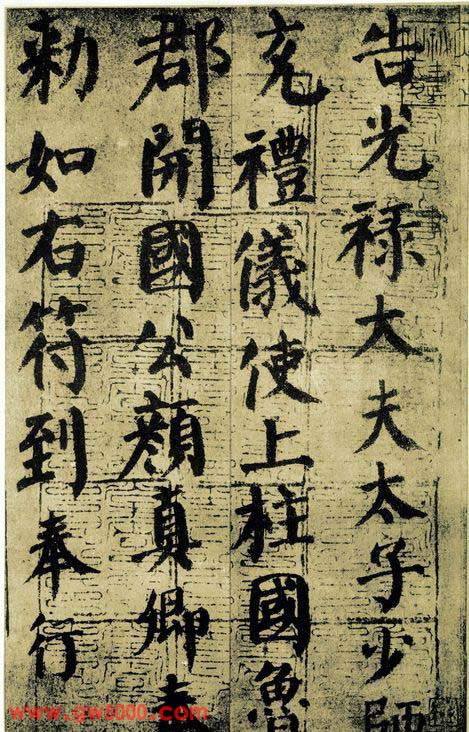 告光禄大夫太子少師
充禮儀使上柱國魯
郡開國公顔真卿奉
勅如右符到奉行
www.gw5000.com